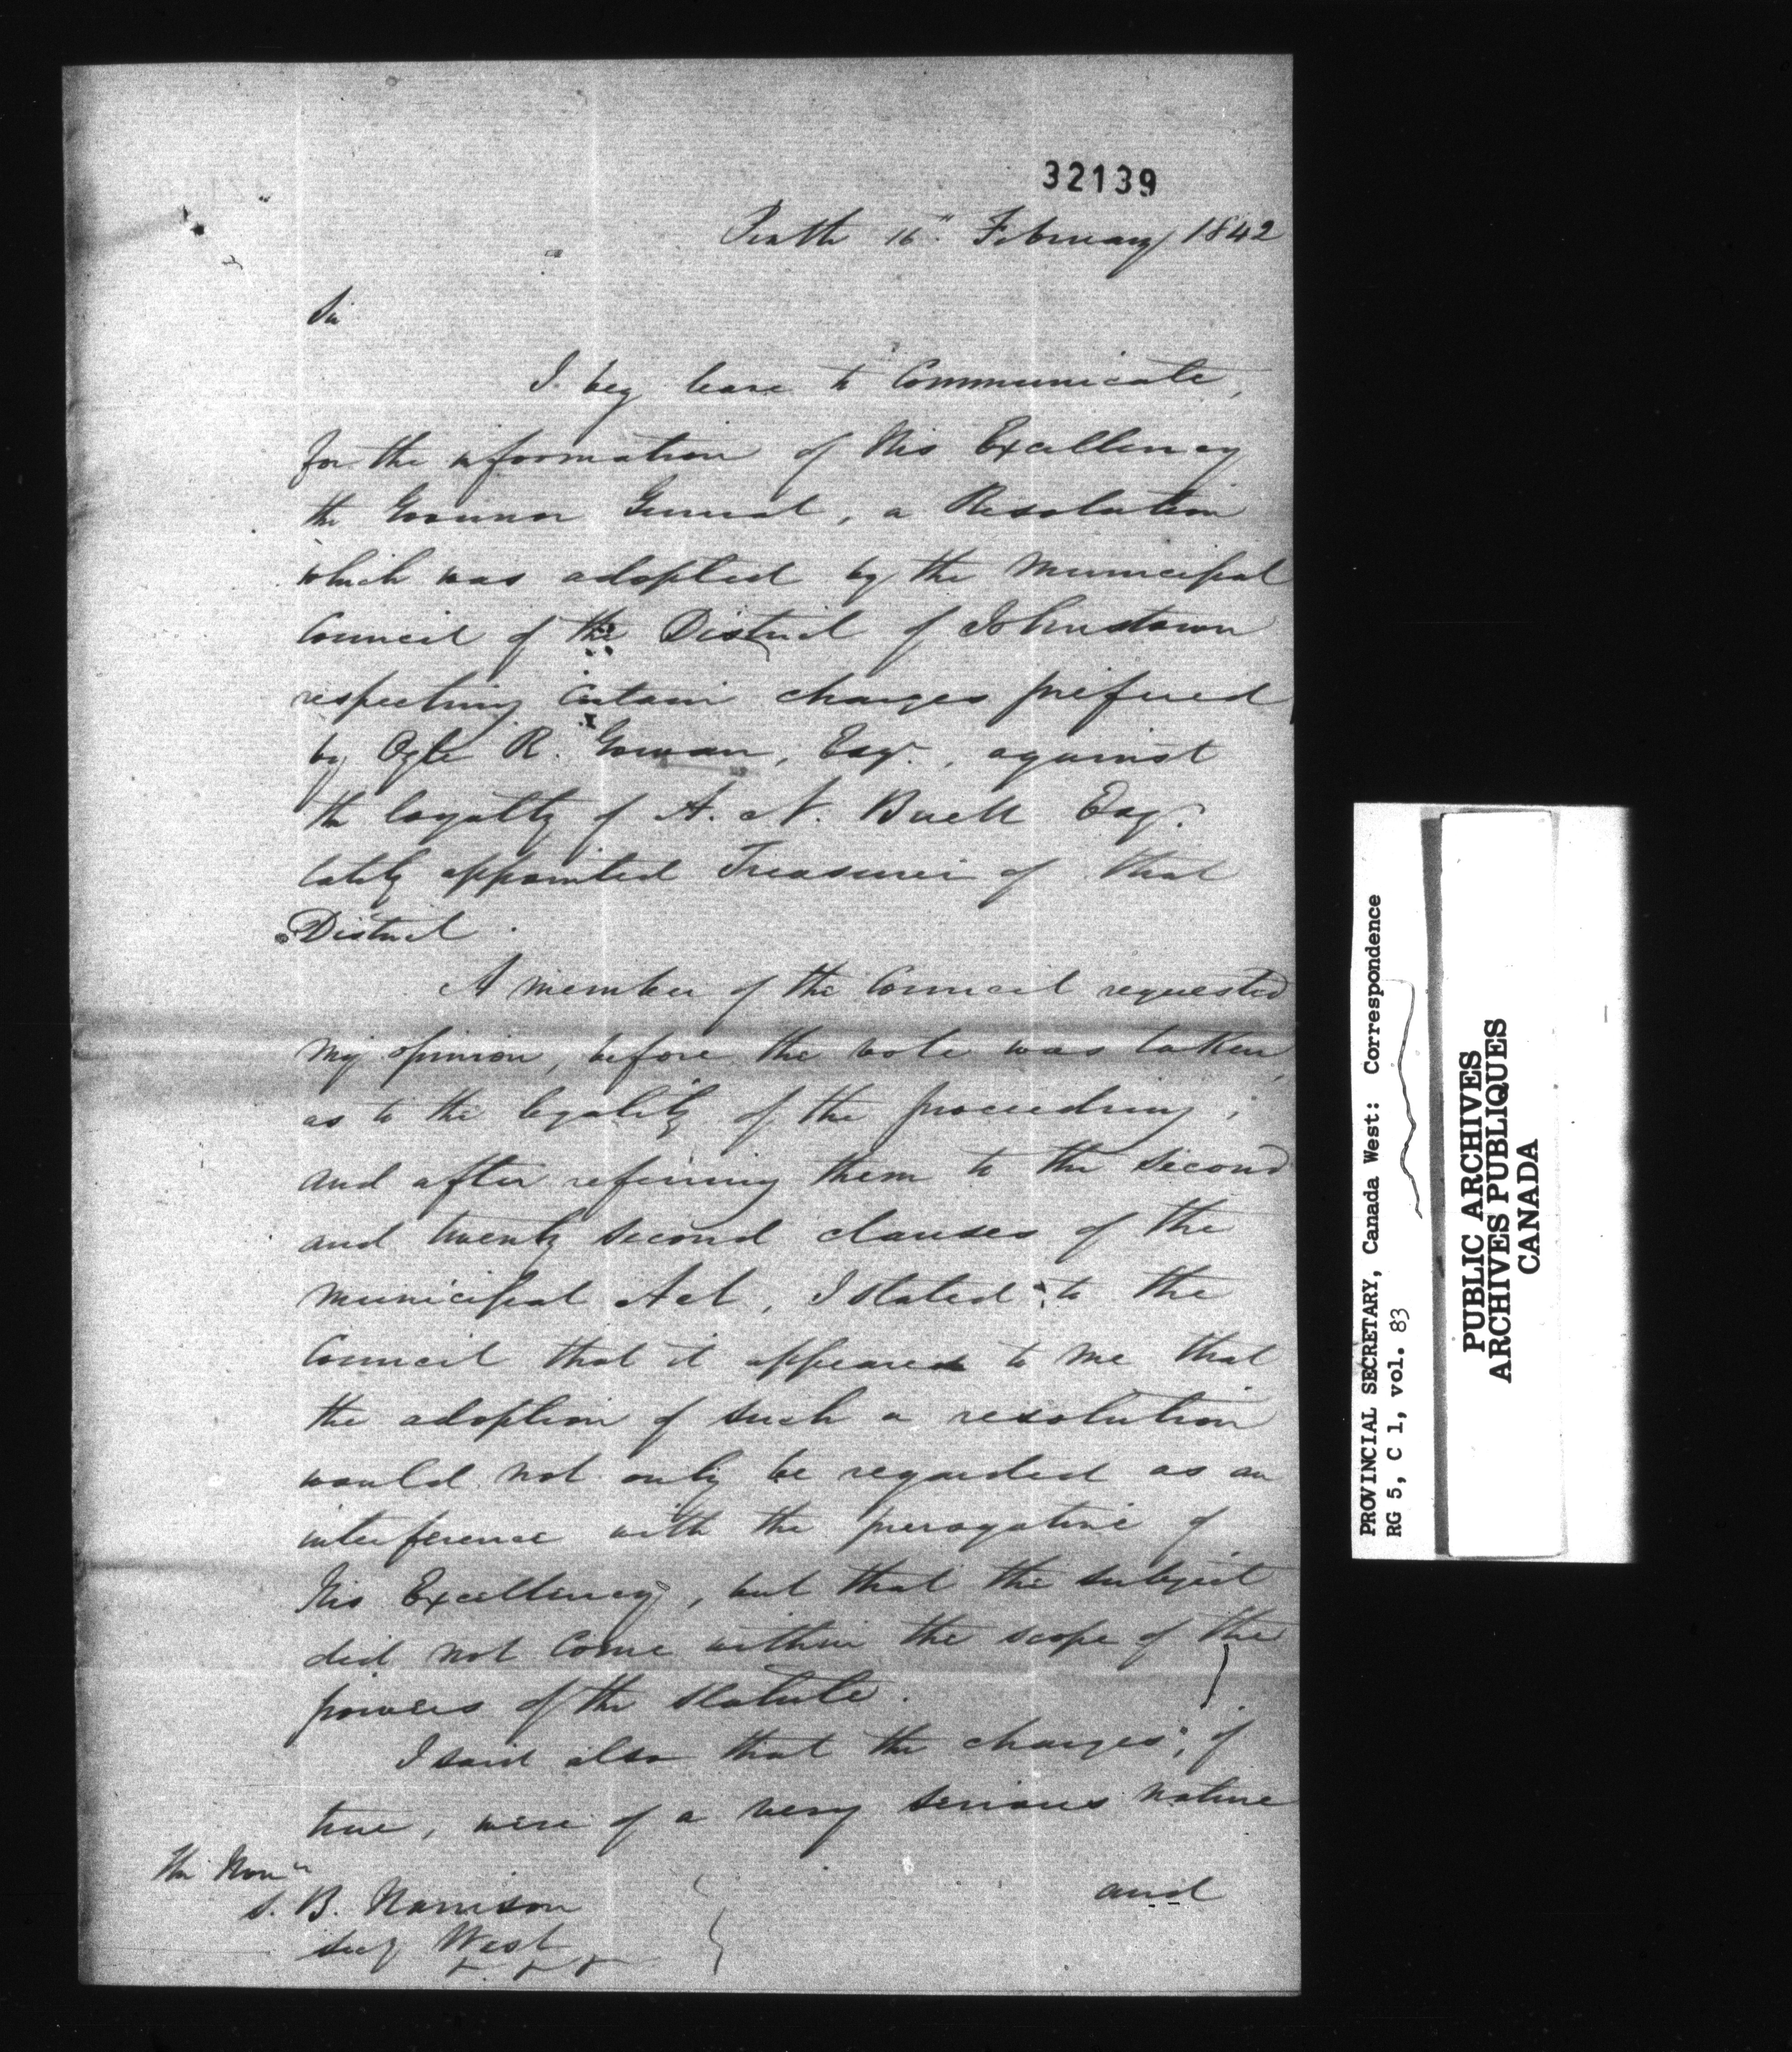 32139
Perth 16th February 1842
Sir
I beg leave to Communicate,
for the information of His Excellency
the Governor General, a Resolution
which was adopted by the Municipal
Council of the District of Johnstown
respecting Certain charges prefered
by Ogle R. Gowan, Esqr., against
the loyalty of A. N. Buell Esqr.
lately appointed Treasurer of that
District.
A member of the Council requested
my opinion, before the vote was taken,
as to the legality of the proceeding;
and after referring them to the second
and twenty second clauses of the
Municipal Act, I stated to the
Council that it appeared to me that
the adoption of such a resolution
would not only be regarded as an
interference with the prerogative of
His Excellency, but that the subject
did not come within the scope of the
powers of the Statute.
I said also that the charges, if
true, were of a very serious nature
and
The Honble
S. B. Harrison
Secy West
PROVINCIAL SECRETARY, Canada West: Correspondence
RG 5, C 1, vol. 83
PUBLIC ARCHIVES
ARCHIVES PUBLIQUES
CANADA